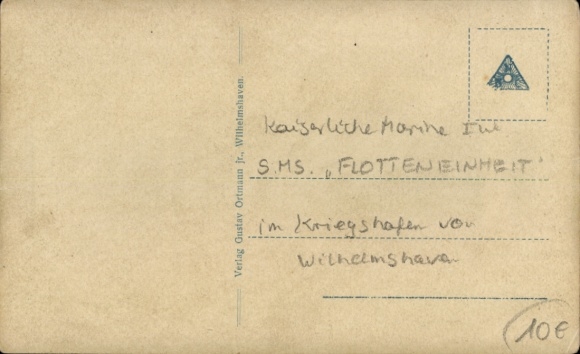 Verlag Gustav Ortmann jr., Wilhelmshaven.
Kaiserliche Marine
S.M.S. „FLOTTENEINHEIT"
im Kriegshafen von
Wilhelmshaven
10€